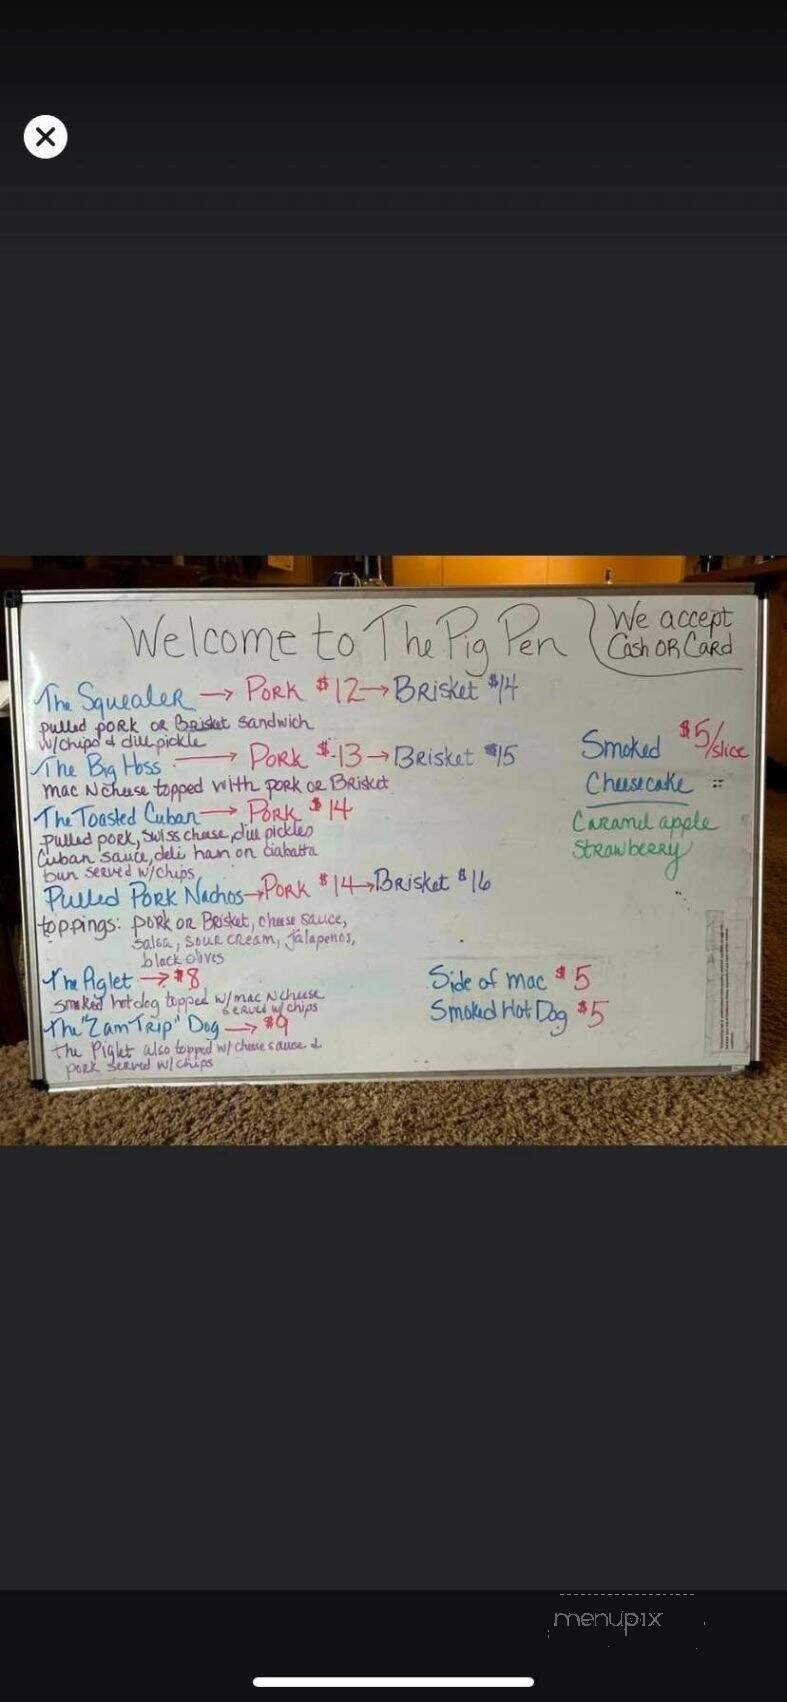 Welcome to The Pig Pen
We accept
Cash OR Card
The Squealer → Pork $12 → Brisket $14
pulled pork or Brisket sandwich
w/chips & dill pickle
The Big Hoss → Pork $13 → Brisket $15
mac N cheese topped with pork or Brisket
The Toasted Cuban → Pork $14
pulled pork, swiss cheese, dill pickles
Cuban sauce, deli ham on ciabatta
bun served w/chips
Pulled Pork Nachos → Pork $14 → Brisket $16
toppings: pork or Brisket, cheese sauce,
salsa, sour cream, jalapenos,
black olives
The Piglet → $8
smoked hotdog topped w/mac N cheese
served w/chips
The "Zam Trip" Dog → $9
the Piglet also topped w/cheese sauce &
pork served w/chips
Smoked $5/slice
Cheesecake
Caramel apple
Strawberry
Side of mac $5
Smoked Hot Dog $5
menupix